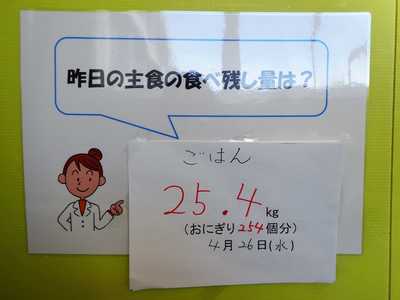 昨日の主食の食べ残し量は？
ごはん
25.4kg
(おにぎり254個分)
4月26日(水)